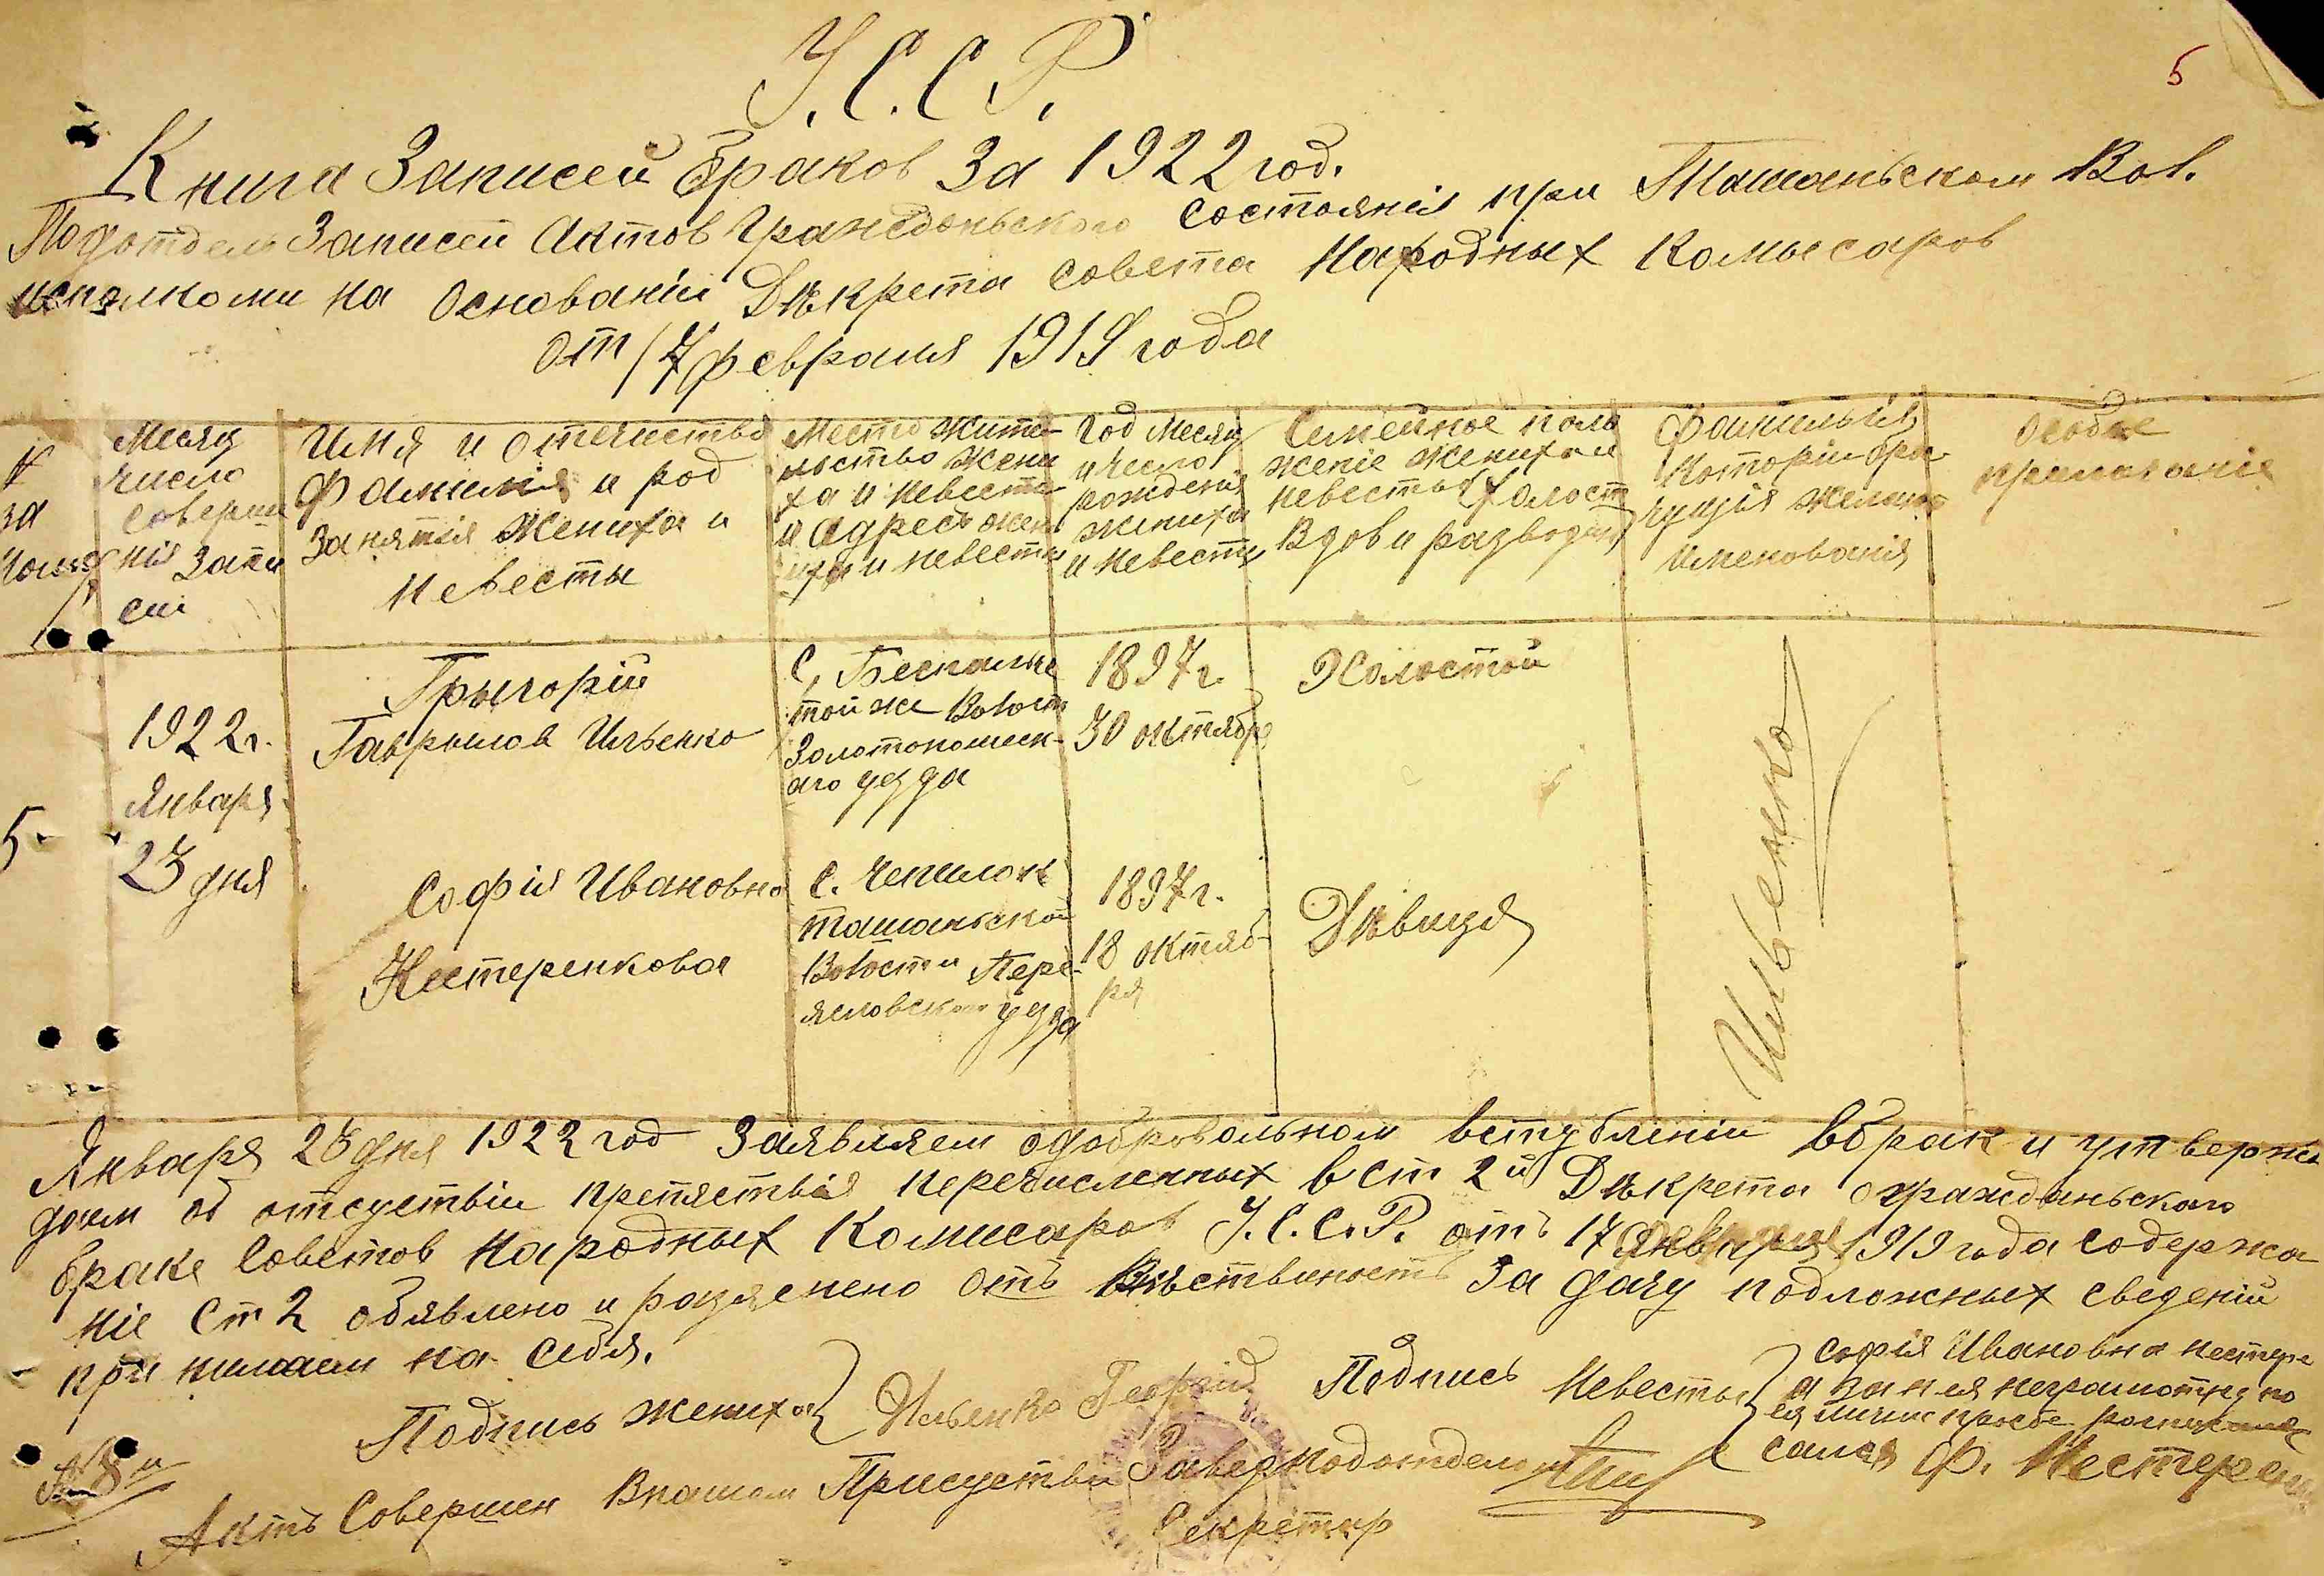 У.С.С.Р.
5
Книга Записей браков За 1922 год.
Подотдель Записей Актов Гражданьского состоянія при Ташаньском Вол.
исполкоми на основаніи Дѣкрета совета Народных Комысаров
от 17 февраля 1919 года
№ за
Месяц
число
соверше
нія Запи
сиі
Имя и отечиство
Фамилия и род
Занятія Жениха и
Невесты
Место жите-
льство жени
ха и невесты
и адресъ жен
иха и невесты
Год месяц
и число
рождения
жениха
и невесты
Семейное поло
жение жениха и
невесты (холост
Вдов и разведен)
Фамилыя
Которію бра
чущія желают
именования
Особое
примачаніе
5.
1922 г.
Января
23 дня
Грыгорій
Гаврылов Ильенко
С. Беспальче
той же Волост
Золотоношен-
аго уезда
1897 г.
30 октября
Холостой
Ильенко
Софія Ивановна
Нестеренкова
С. Чепилок
ташаньской
Волости Пере-
яславского уезда
1897 г.
18 октяб-
ря
Дѣвица
Января 23 дня 1922 год Заявляем одобровольном вступлении вбрак и утверж
даем об отсуствіи препяствія перечисленных в ст 2й Дѣкрета огражданьского
браке Советов Народных Комисаров У.С.С.Р. отъ 17 февраля 1919 года содержа
ніе ст 2 обявлено и разяснено отъ за дачу подложных сведеній
принимаем на себя.
Подпись жениха} Ильенко Георгій Подпись Невесты}
софія Ивановна нестере
а за нея неграмотну по
ея личне просбе
сался Ф. Нестеренко
Актъ Совершен Внашем Присуствіи Завед подотделом
Секретар